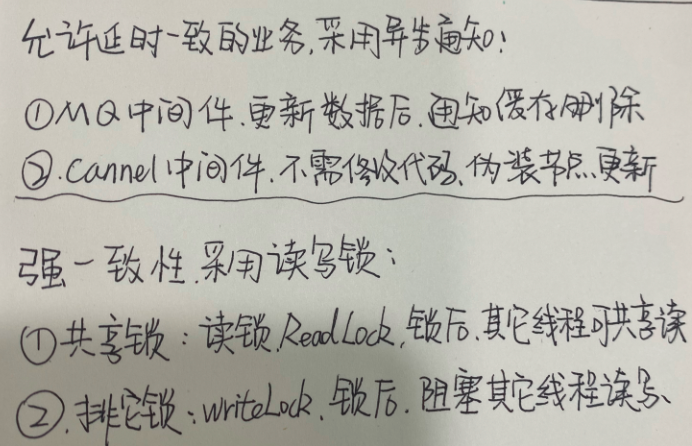 允许延时一致的业务,采用异步通知:
①MQ中间件.更新数据后.通知缓存删除
②.cannel中间件.不需修改代码.伪装节点更新
强一致性.采用读写锁:
①共享锁:读锁.ReadLock,锁后.其它线程可共享读
②.排它锁:writeLock.锁后.阻塞其它线程读写、